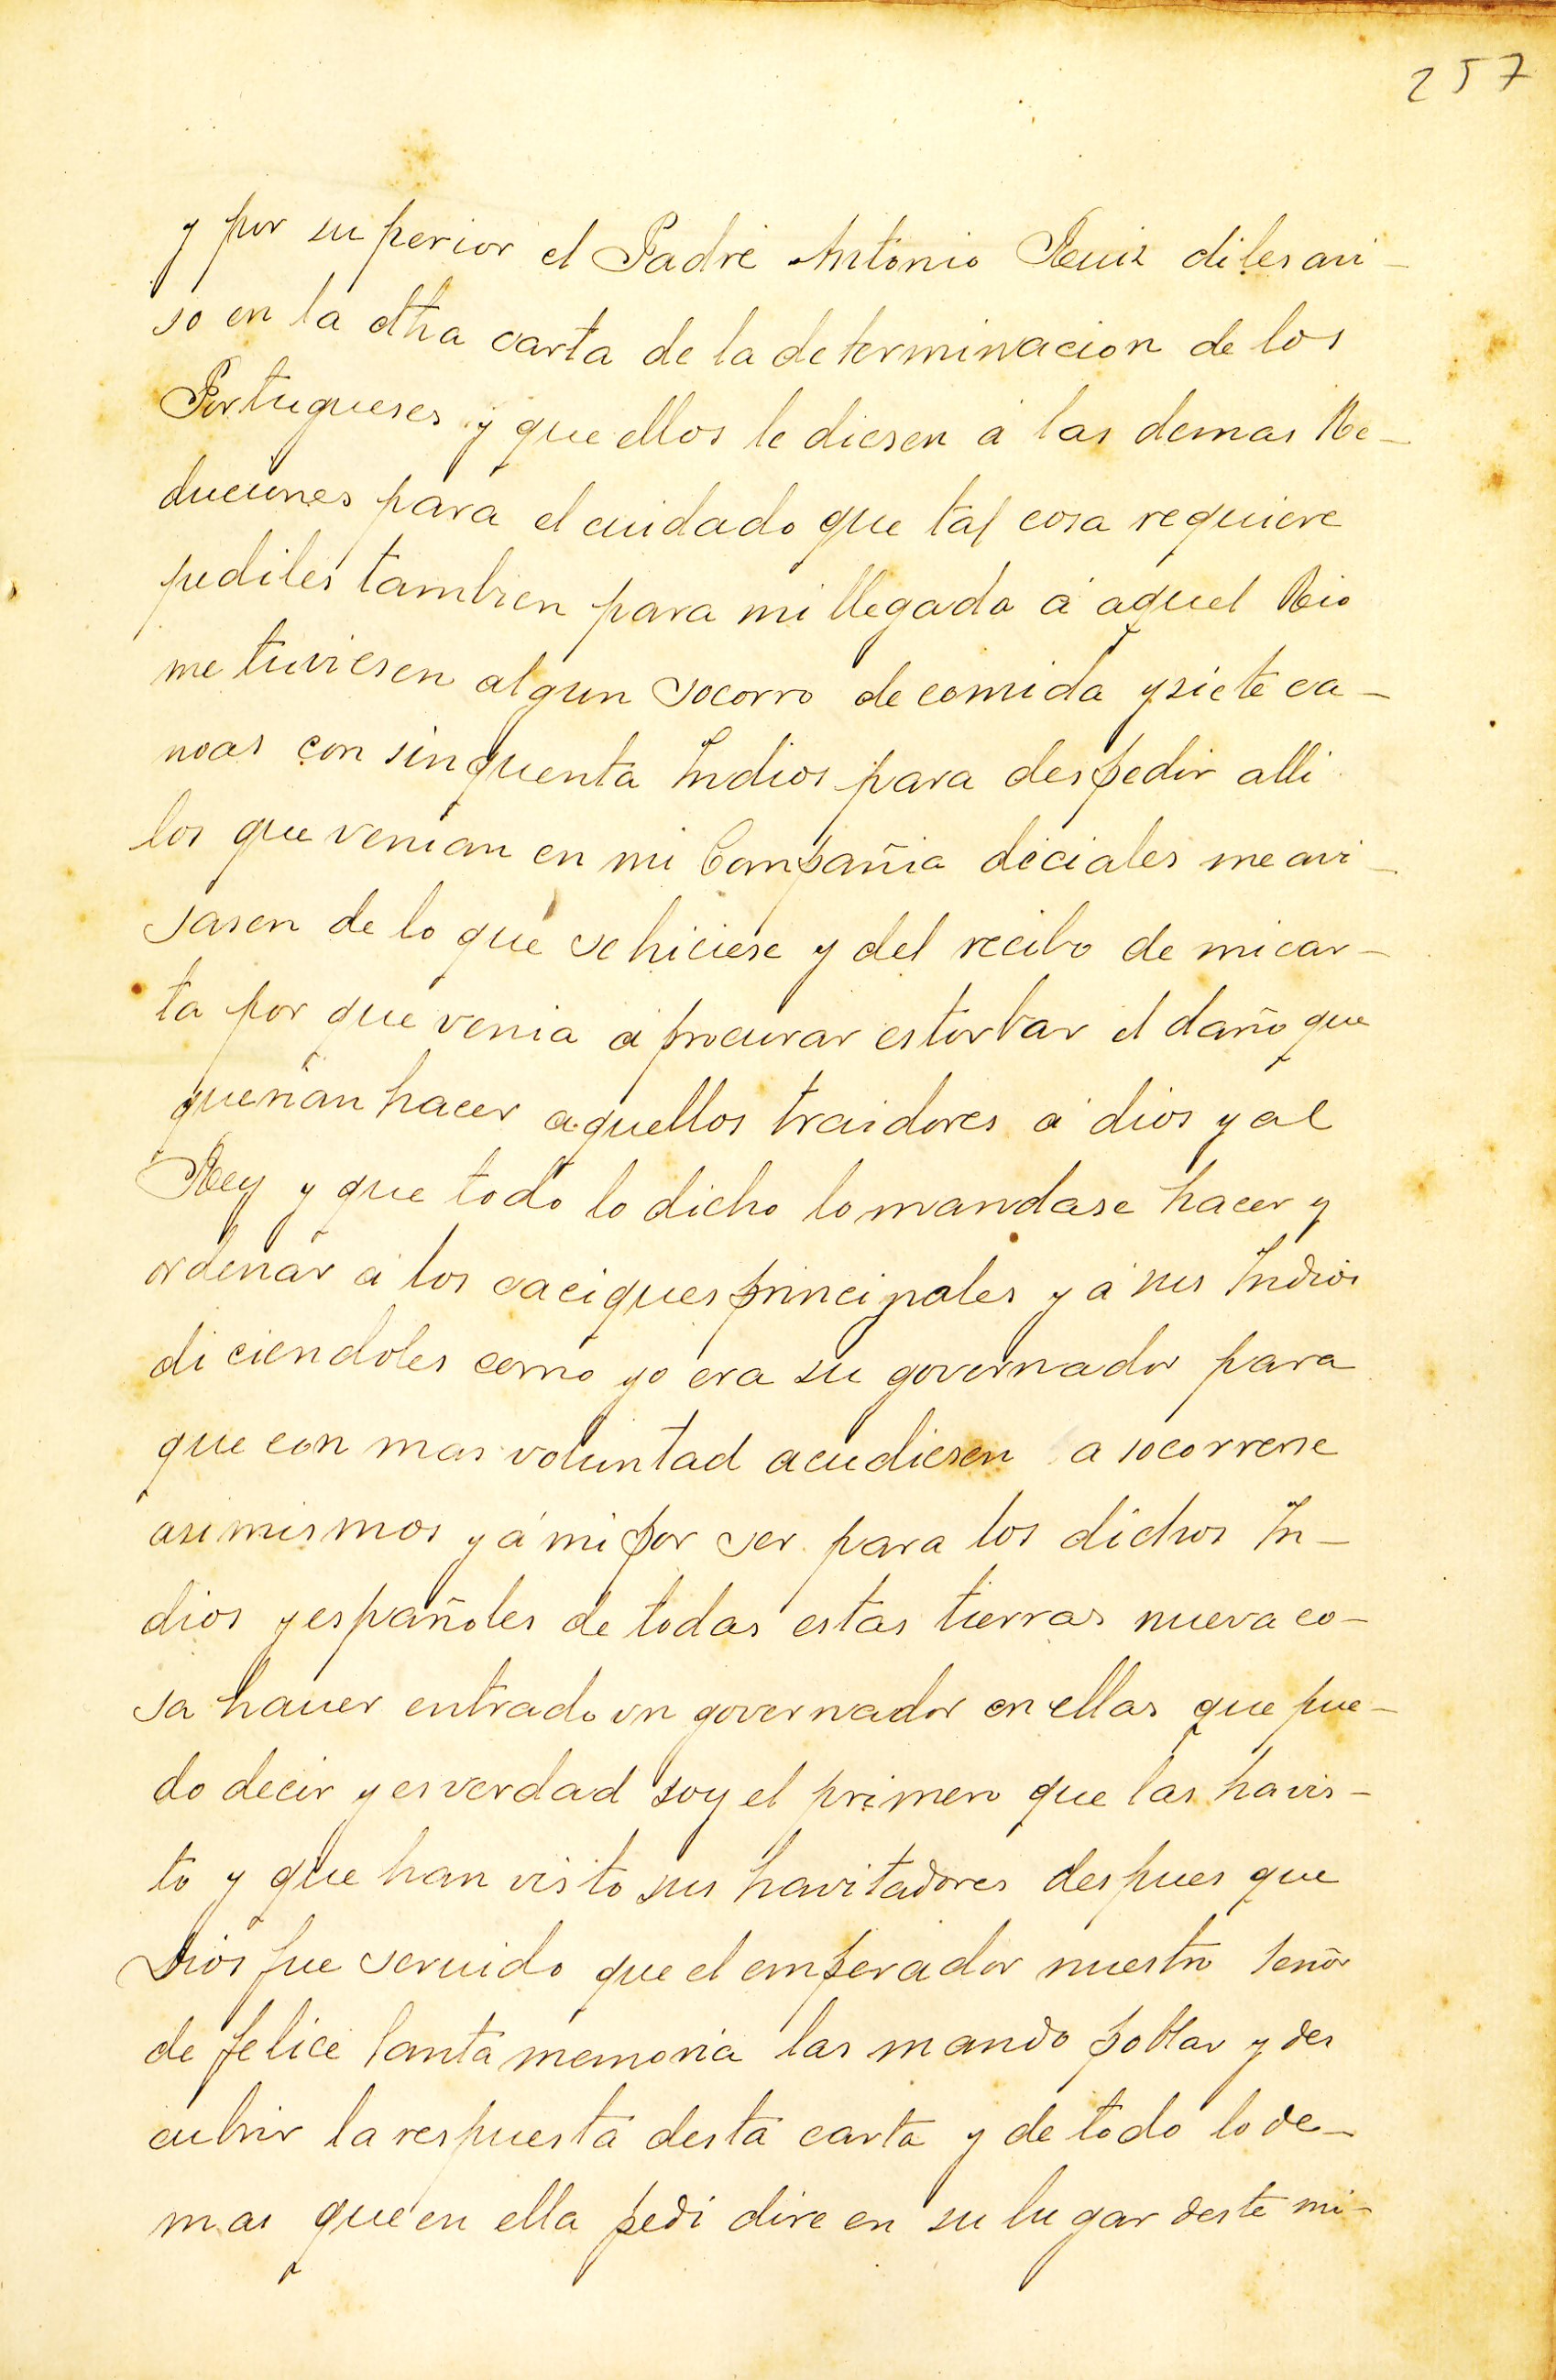 257
y por superior el Padre Antonio Ruiz diles avi-
so en la dha carta de la determinacion de los
Portugueses y que ellos le diesen á las demas Re-
duciones para el cuidado que tal cosa requiere
pediles tambien para mi llegada á aquel Rio
me tuviesen algun socorro de comida y siete ca-
noas con sinquenta Indios para despedir alli
los que venian en mi Compañia deciales me avi-
sasen de lo que se hiciese y del recibo de mi car-
ta por que venia á procurar estorbar el daño que
querian hacer aquellos traidores á dios y al
Rey y que todo lo dicho lo mandase hacer y
ordenar á los caciques principales y á sus Indios
diciendoles como yo era su governador para
que con mas voluntad acudiesen a socorrerse
asi mismos y á mi por ser para los dichos In-
dios y españoles de todas estas tierras nueva co-
sa hauer entrado un governador en ellas que pue-
do decir y es verdad soy el primero que las havis-
to y que han visto sus havitadores despues que
Dios fue seruido que el emperador nuestro señor
de felice santa memoria las mando poblar y des
cubrir la respuesta desta carta y de todo lo de-
mas que en ella pedi dire en su lugar deste mi-